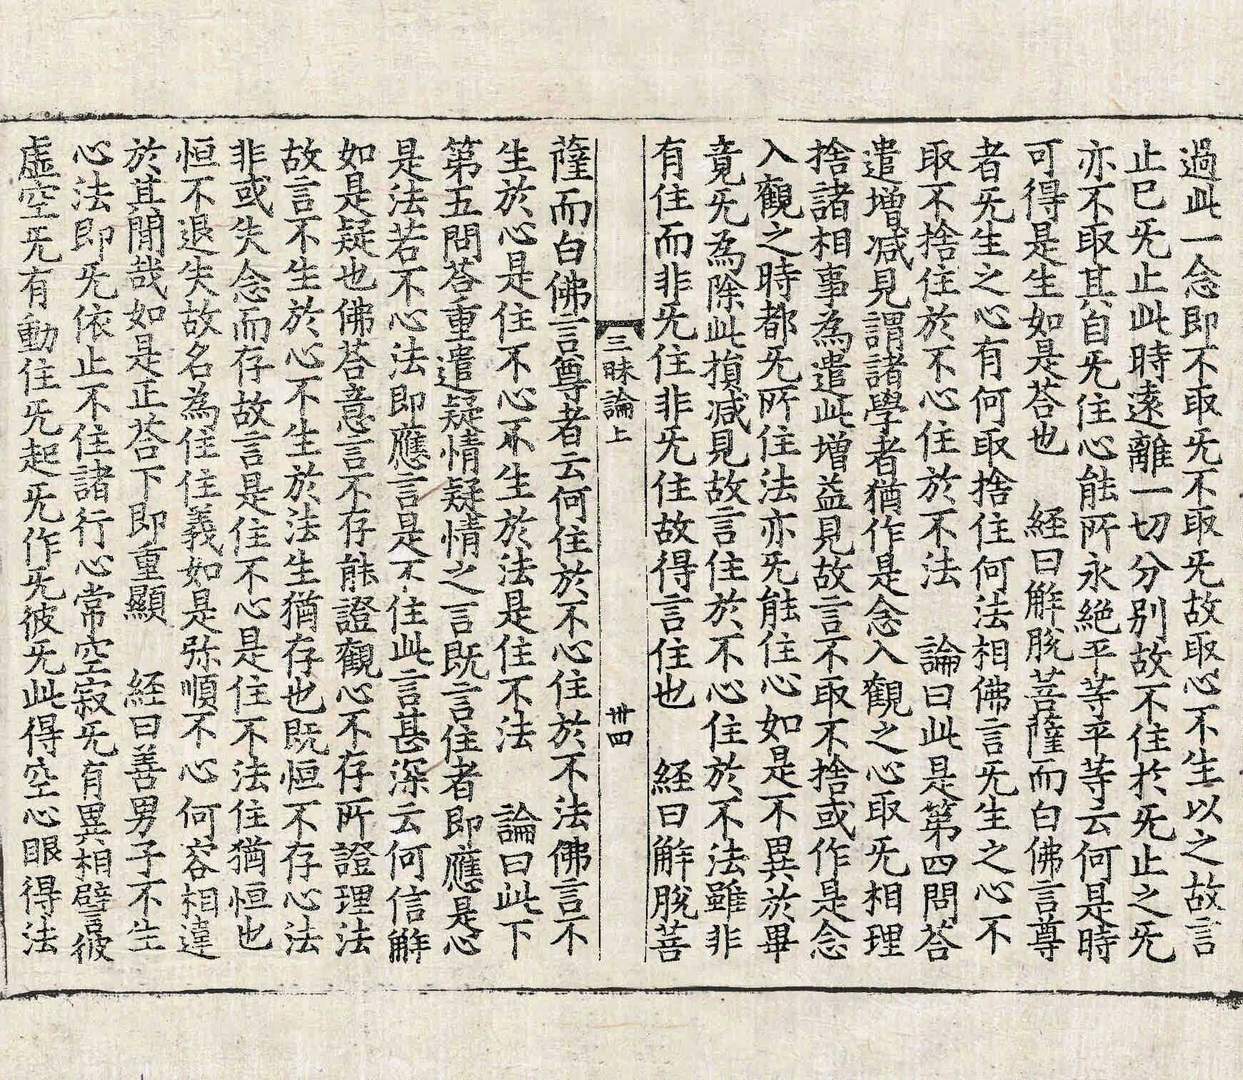 過此一念即不取无不取无故取心不生以之故言
止已无止此時遠離一切分别故不住於无止之无
亦不取其自无住心能所永絶平等平等云何是時
可得是生如是荅也　經曰解脫菩薩而白佛言尊
者无生之心有何取捨住何法相佛言无生之心不
取不捨住於不心住於不法　論曰此是第四問荅
遣增減見謂諸學者猶作是念入觀之心取无相理
捨諸相事為遣此增益見故言不取不捨或作是念
入觀之時都无所住法亦无能住心如是不異於畢
竟无為除此損減見故言住於不心住於不法雖非
有住而非无住非无住故得言住也　經曰解脫菩
三昧論上　卅四
薩而白佛言尊者云何住於不心住於不法佛言不
生於心是住不心不生於法是住不法　論曰此下
第五問荅重遣疑情疑情之言既言住者即應是心
是法若不心法即應言是不住此言甚深云何信解
如是疑也佛荅意言不存能證觀心不存所證理法
故言不生於心不生於法生猶存也既恒不存心法
非或失念而存故言是住不心是住不法住猶恒也
恒不退失故名為住住義如是弥順不心何容相違
於其閒哉如是正荅下即重顯　經曰善男子不生
心法即无依止不住諸行心常空寂无有異相譬彼
虛空无有動住无起无作无彼无此得空心眼得法